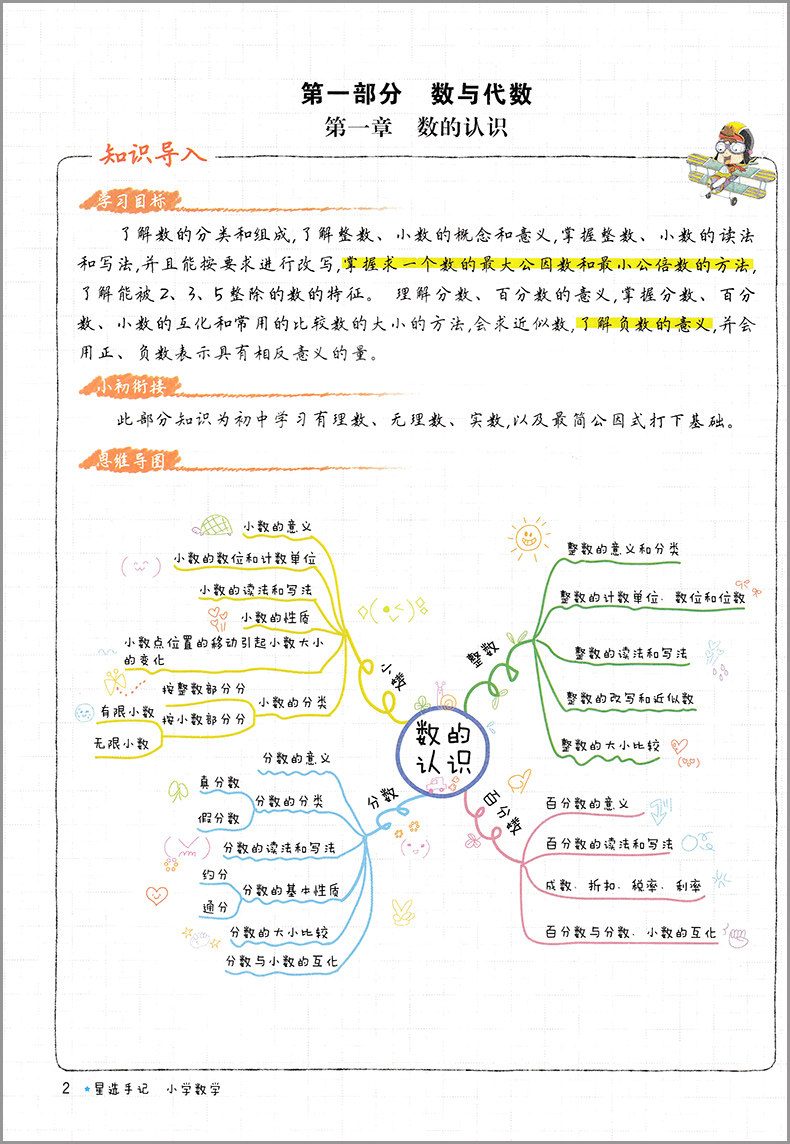 第一部分 数与代数
第一章 数的认识
知识导入
学习目标
了解数的分类和组成,了解整数、小数的概念和意义,掌握整数、小数的读法
和写法,并且能按要求进行改写,掌握求一个数的最大公因数和最小公倍数的方法,
了解能被2、3、5整除的数的特征。 理解分数、百分数的意义,掌握分数、百分
数、小数的互化和常用的比较数的大小的方法,会求近似数,了解负数的意义,并会
用正、负数表示具有相反意义的量。
小初衔接
此部分知识为初中学习有理数、无理数、实数,以及最简公因式打下基础。
思维导图
小数的意义
小数的数位和计数单位
小数的读法和写法
小数的性质
小数点位置的移动引起小数大小
的变化
按整数部分分
小数的分类
有限小数
按小数部分分
无限小数
小数
整数
整数的意义和分类
整数的计数单位、数位和位数
整数的读法和写法
整数的改写和近似数
整数的大小比较
数的
认识
分数
分数的意义
真分数
分数的分类
假分数
分数的读法和写法
约分
分数的基本性质
通分
分数的大小比较
分数与小数的互化
百分数
百分数的意义
百分数的读法和写法
成数、折扣、税率、利率
百分数与分数、小数的互化
2 ★星选手记 小学数学